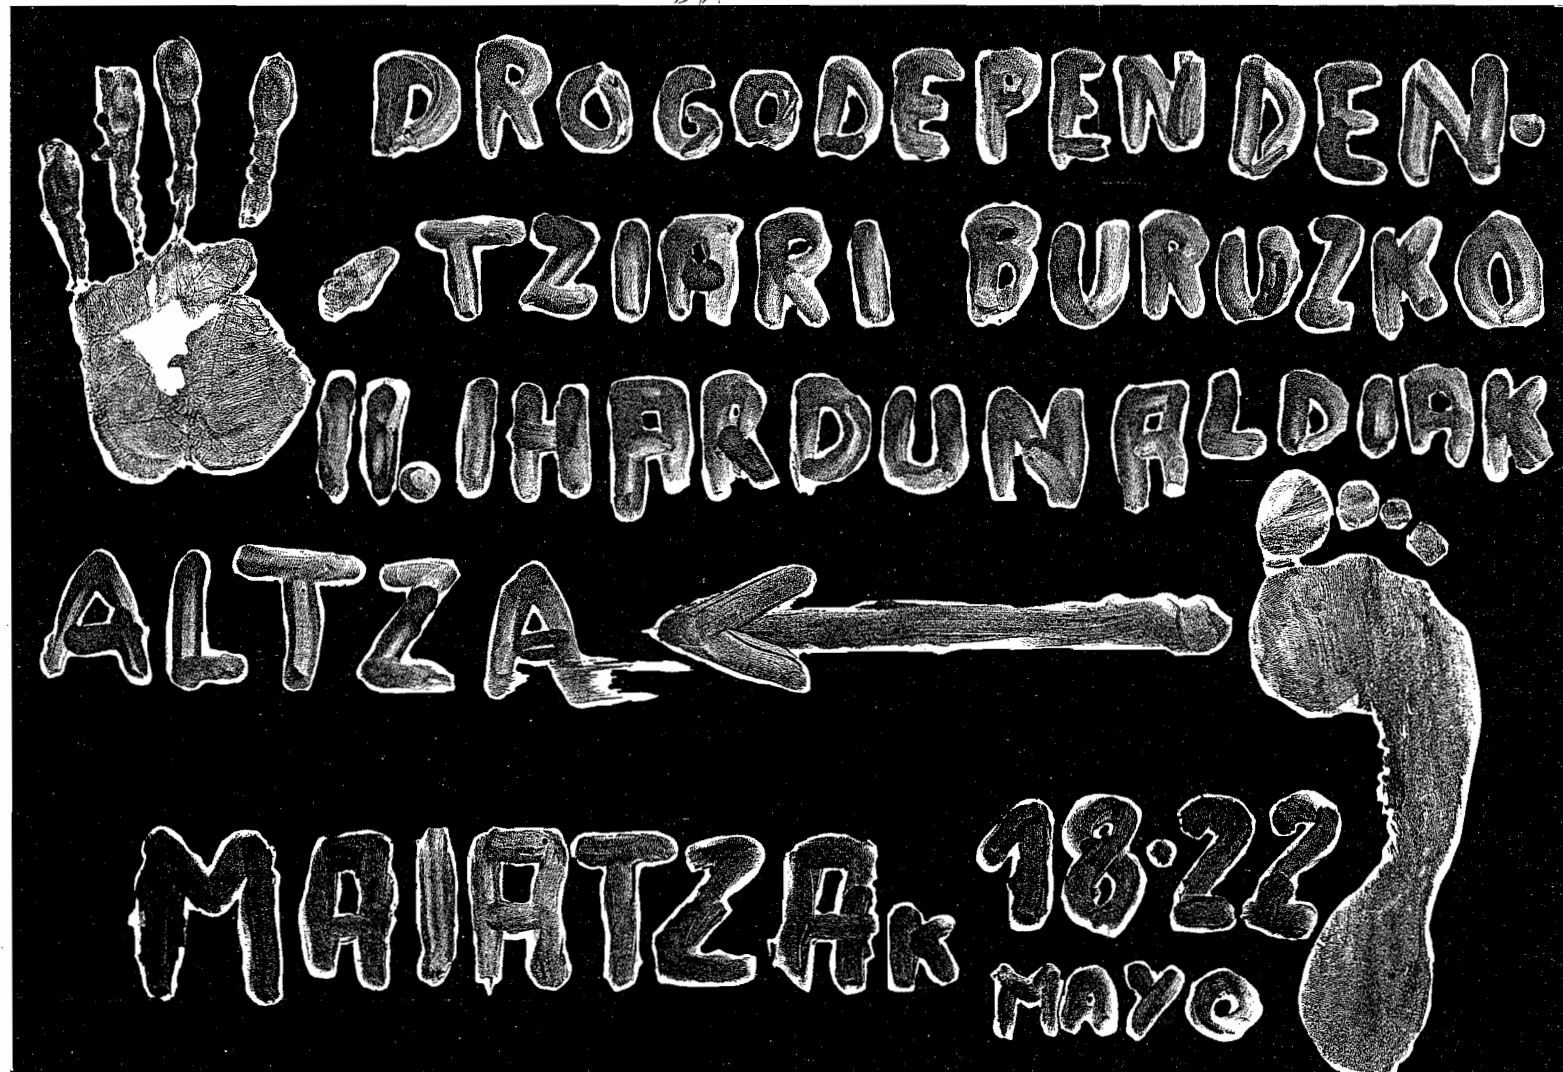 DROGODEPENDEN-
-TZIARI BURUZKO
II. IHARDUNALDIAK
ALTZA
MAIATZAK 18-22
MAYO